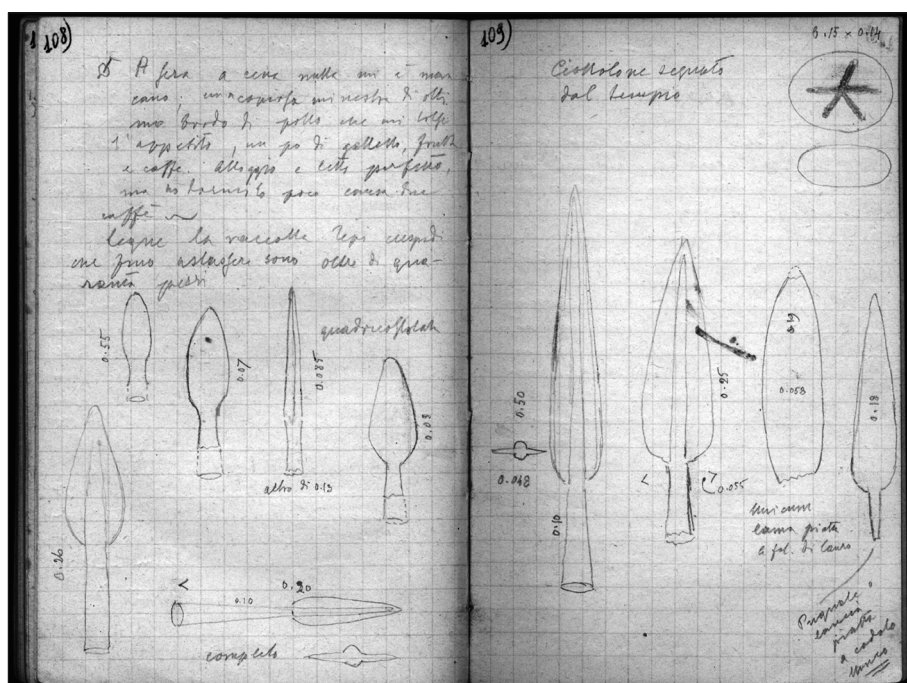 108)
A sera a cena nulla mi è man
cano; una copiosa minestra di otti
mo brodo di pollo che mi tolse
l'appetito, un po di galletto, frutta
e caffe. Alloggio e letto perfetto,
ma ho dormito poco causa due
caffè
Segue la raccolta Tipi cuspidi
che sono oltre di qua-
ranta pezzi
quadricostolata
0.55
0.07
0.085
0.09
altro di 0.13
0.26
0.20
0.10
completo
109)
0.15 × 0.14
Ciottolone segnato
dal tempio
0.50
0.048
0.10
0.25
0.055
0.19
0.058
0.18
Unicum
lama piatta
a fol. di lauro
Pugnale o
lancia
piatta
a codolo
Unico